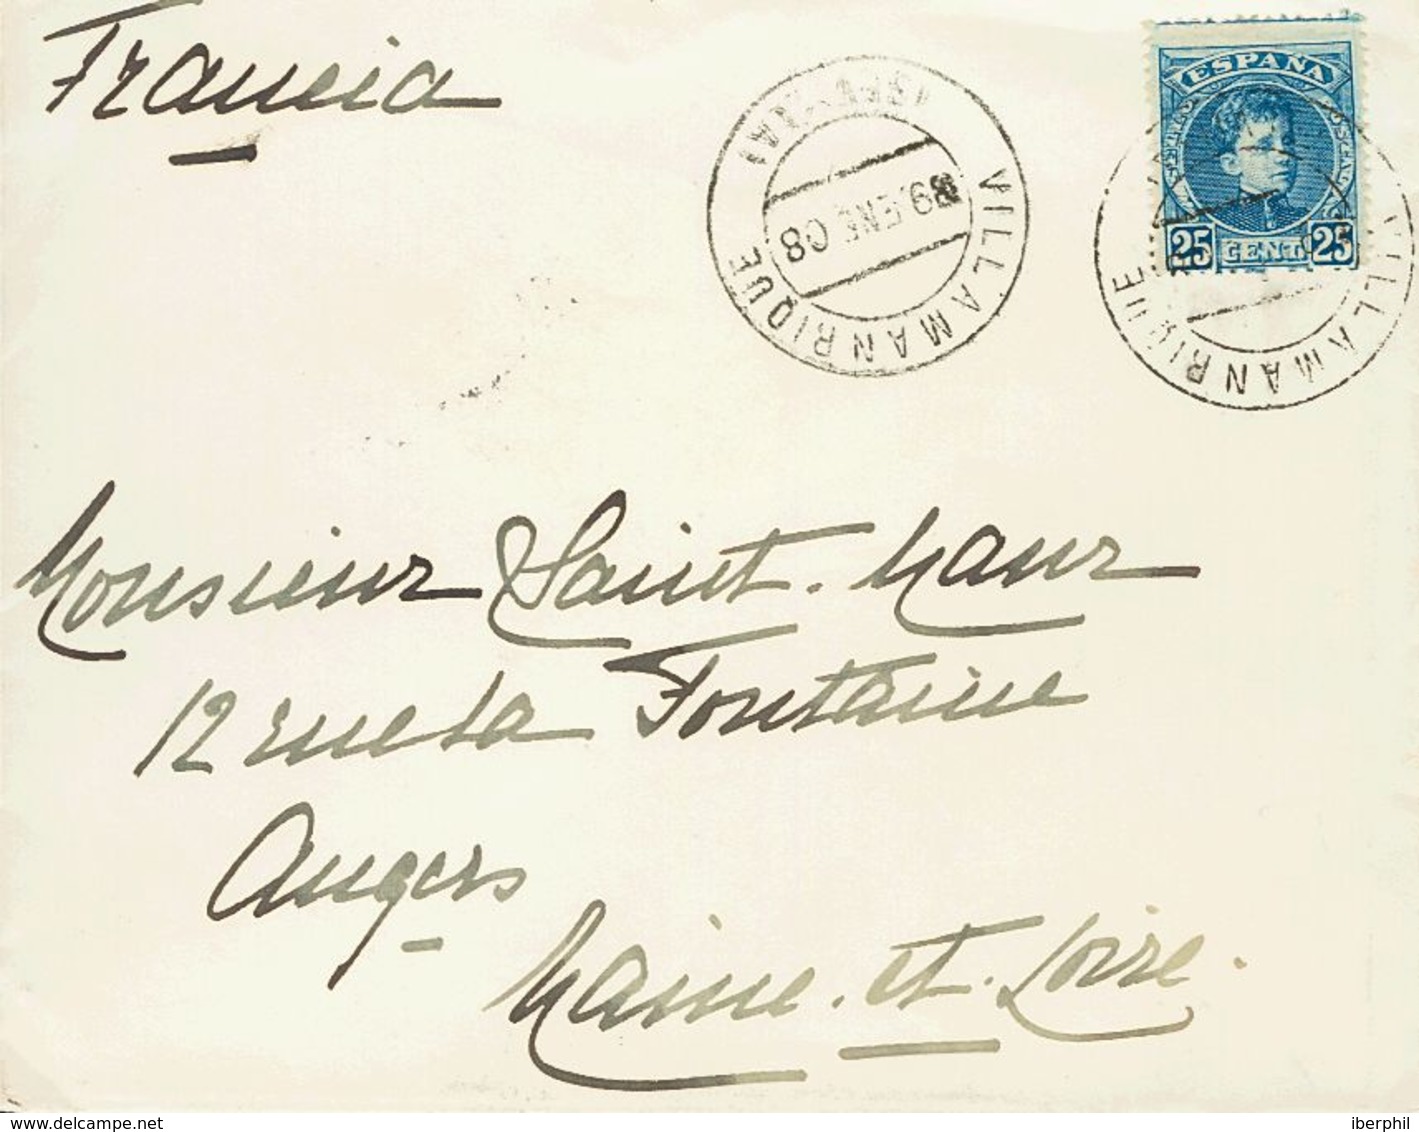 Francia
ESPAÑA
25 CENT. 25
VILLAMANRIQUE
ENE 08
VILLAMANRIQUE
Monsieur Saint-Maur
12 rue la Fontaine
Angers
Maine-et-Loire.
www.delcampe.net
iberphil